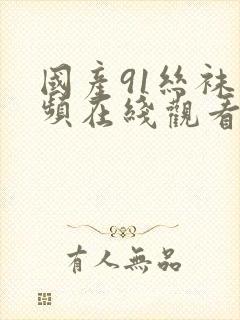 國產91絲袜
頻在綫觀看
有人無品